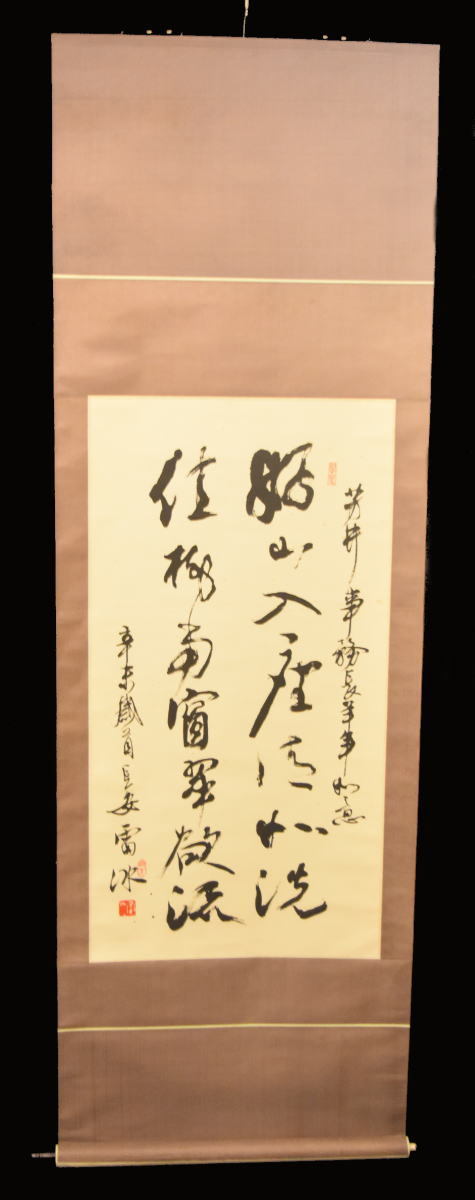 芳井事務長羊年如意
山入座清如洗
佳樹當窗翠欲流
辛未歲首長安雷冰